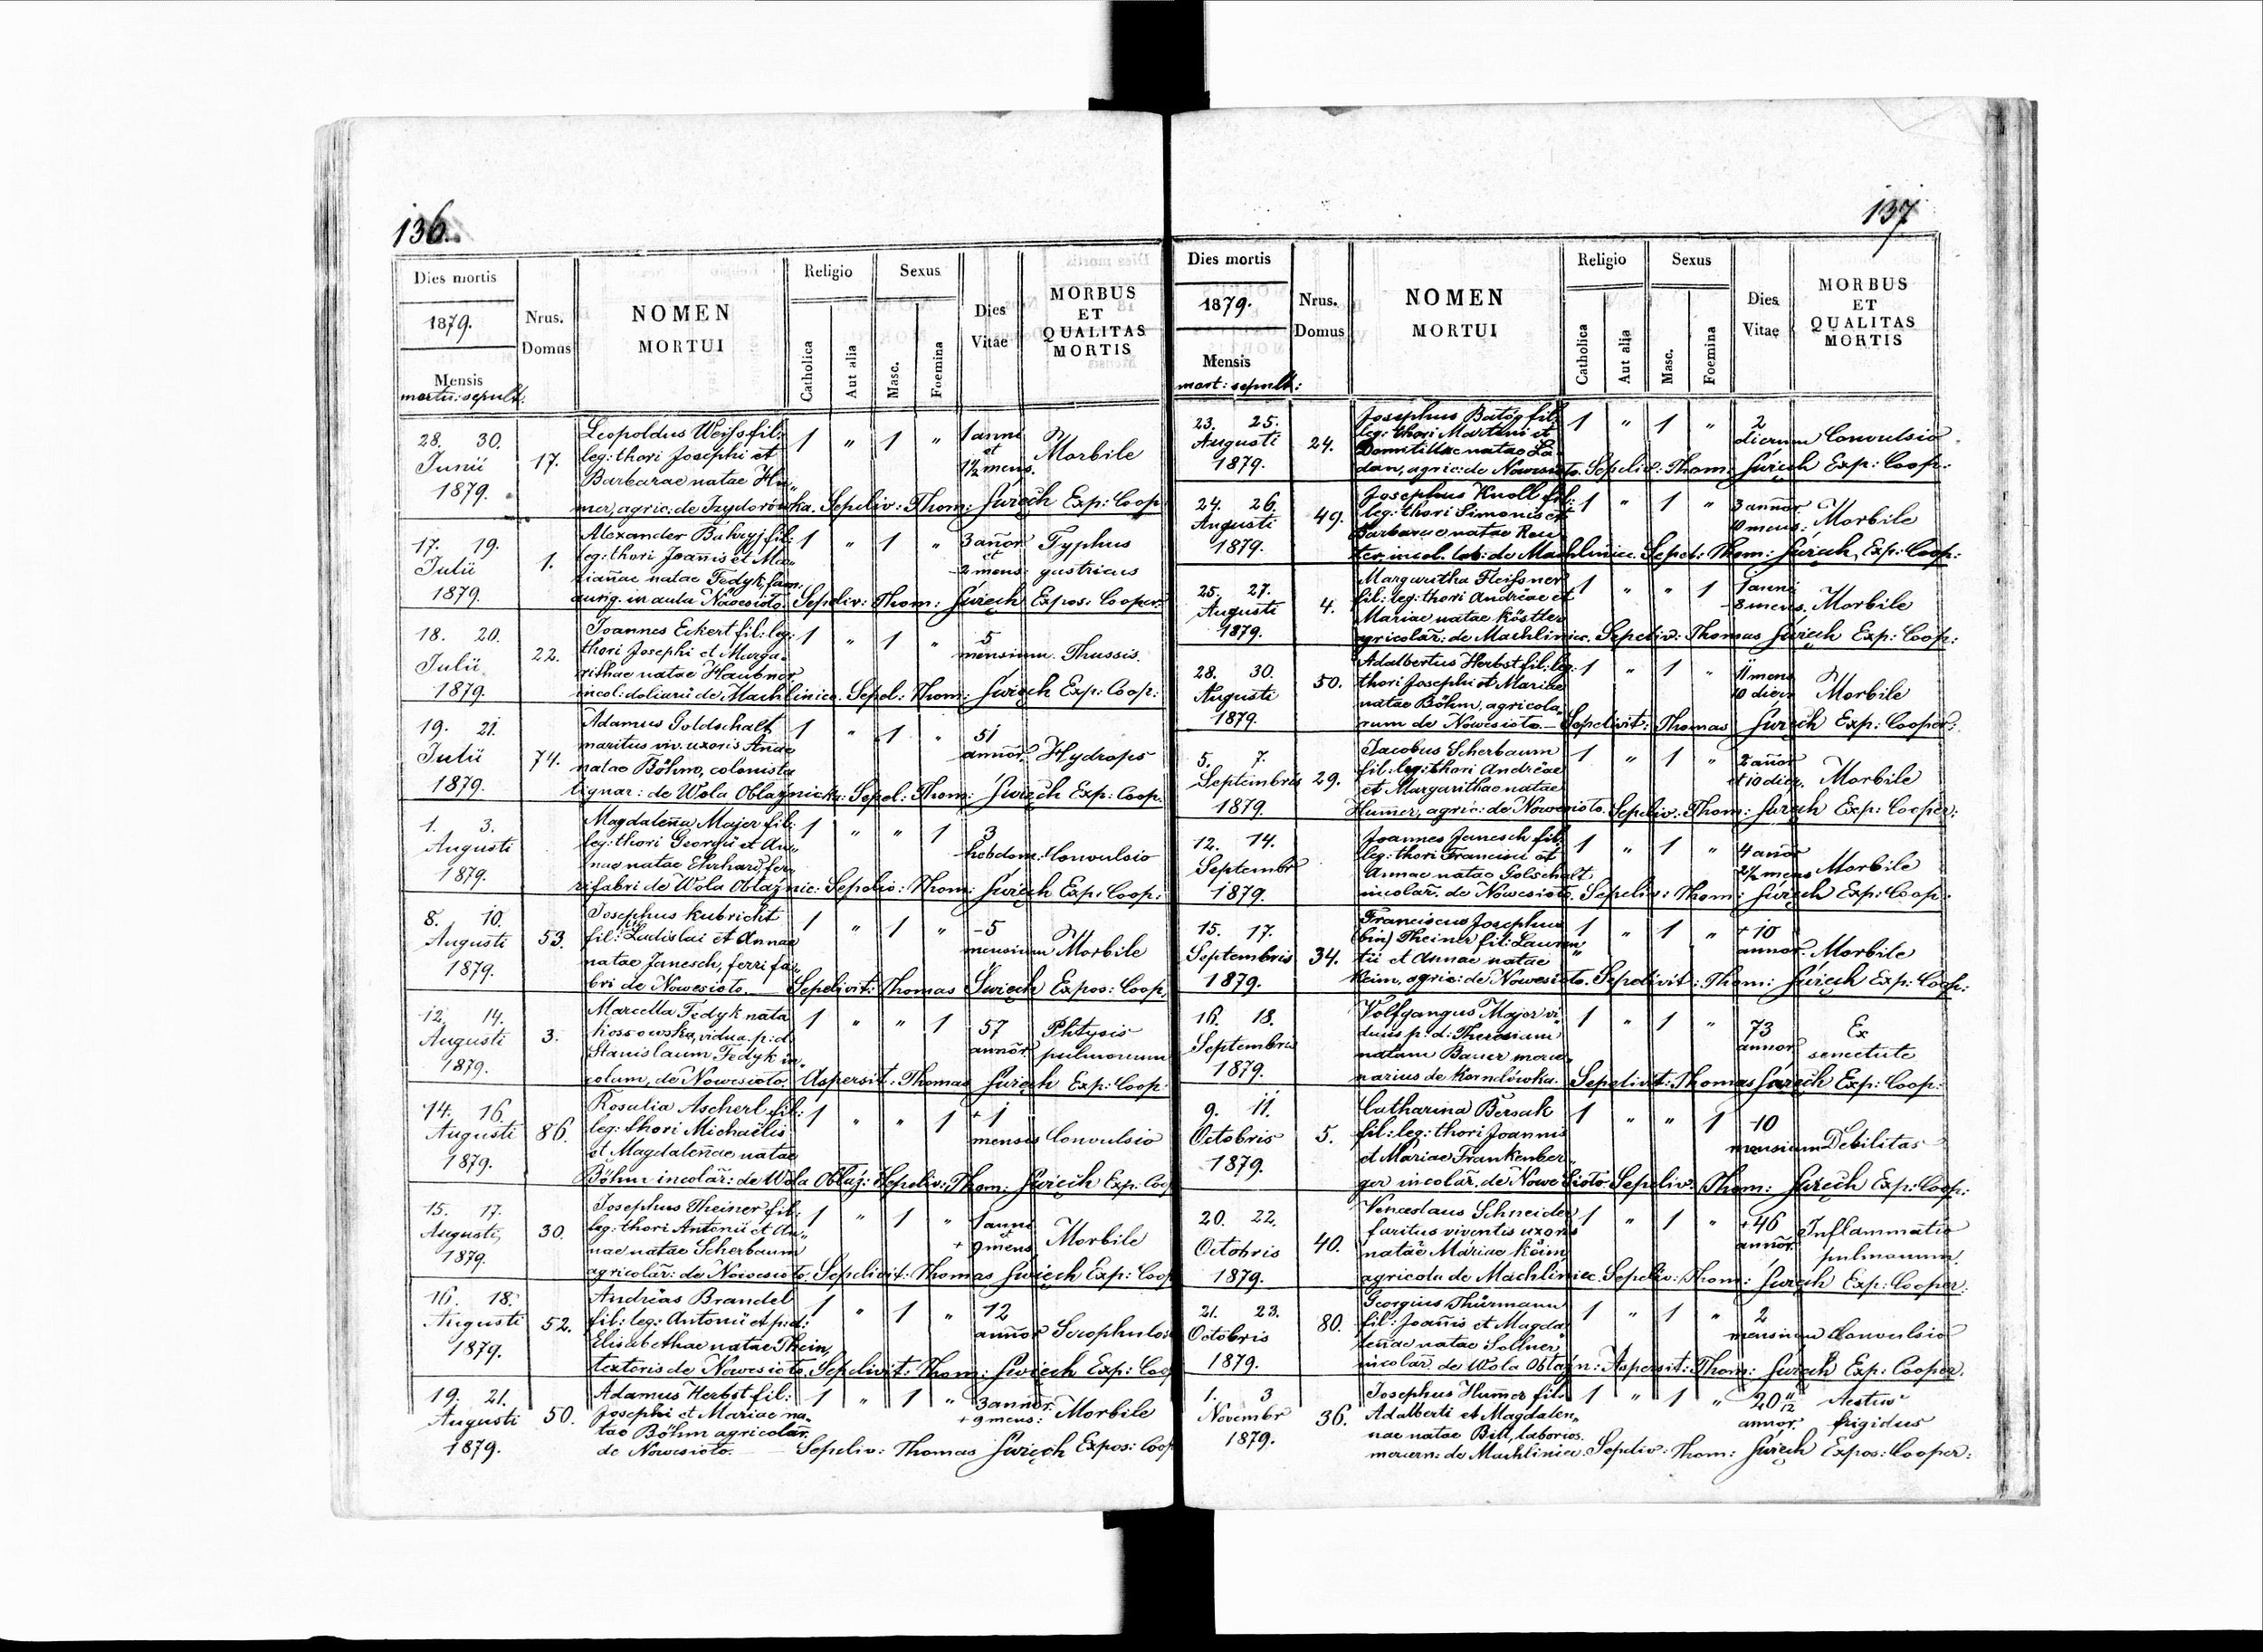 136.
Dies mortis
1879.
Mensis
mortu: sepult:
Nrus.
Domus
NOMEN
MORTUI
Religio
Catholica
Aut alia
Sexus
Masc.
Foemina
Dies
Vitae
MORBUS
ET
QUALITAS
MORTIS
28. 30.
Junii
1879.
17.
Leopoldus Weiss fil:
leg: thori Josephi et
Barbarae natae Hu„
mer, agric: de Izydorówka. Sepeliv: Thom: Święch Exp: Coop
1 " 1 "
1 anni
et
1½ mens.
Morbile
17. 19.
Julii
1879.
1.
Alexander Bahryj fil:
leg: thori Joannis et Ma„
riannae natae Fedyk fam.
aurig. in aula Nowesioło. Sepeliv: Thom: Święch Expos: Cooper:
1 " 1 "
3 annor.
et
2 mens:
Typhus
gastricus
18. 20.
Julii
1879.
22.
Joannes Eckert fil: leg:
thori Josephi et Marga„
rithae natae Haubner
incol: doliarii de Machliniec. Sepel: Thom: Święch Exp: Coop:
1 " 1 "
5
mensium
Thussis.
19. 21.
Julii
1879.
74.
Adamus Goldschalt
maritus viv. uxoris Annae
natae Böhm, colonista
lignar: de Wola Oblaźnicka: Sepel: Thom: Święch Exp: Coop.
1 " 1 "
51
annor.
Hydrops
1. 3.
Augusti
1879.
Magdalena Majer fil:
leg: thori Georgii et An„
nae natae Ehrhard, fer„
rifabri de Wola Oblaźnic: Sepeliv: Thom: Święch Exp: Coop:
1 " " 1
3
hebdom:
Convulsio
8. 10.
Augusti
1879.
53.
Josephus Kubricht
fil: Ladislai et Annae
natae Janesch, ferri fa„
bri de Nowesioło. Sepelivit: Thomas Święch Expos: Coop.
1 " 1 "
5
mensium
Morbile
12. 14.
Augusti
1879.
3.
Marcella Fedyk nata
Kossowska, vidua p: d:
Stanislaum Fedyk in„
colam, de Nowesioło. Aspersit: Thomas Święch Exp: Coop:
1 " " 1
57
annor.
Phtysis
pulmonum
14. 16.
Augusti
1879.
86.
Rosalia Ascherl fil:
leg: thori Michaëlis
et Magdalenae natae
Böhm incolar: de Wola Oblaź: Sepeliv: Thom: Święch Exp: Coop
1 " " 1
+ 1
mensis
Convulsio
15. 17.
Augusti,
1879.
30.
Josephus Theiner fil:
leg: thori Antonii et An„
nae natae Scherbaum
agricolar: de Nowesioło. Sepelivit: Thomas Święch Exp: Coop
1 " 1 "
1 anni
et
+ 9 mens.
Morbile
16. 18.
Augusti
1879.
52.
Andreas Brandel
fil: leg: Antonii et p: d:
Elisabethae natae Thein,
textoris de Nowesioło. Sepelivit: Thom: Święch Exp: Coop
1 " 1 "
12
annor
Scrophulos
19. 21.
Augusti
1879.
50.
Adamus Herbst fil:
Josephi et Mariae na„
tae Böhm agricolar.
de Nowesioło. Sepeliv: Thomas Święch Expos: Coop
1 " 1 "
3 annor.
+ 9 mens:
Morbile
137
Dies mortis
1879.
Mensis
mort: sepult:
Nrus.
Domus
NOMEN
MORTUI
Religio
Catholica
Aut alia
Sexus
Masc.
Foemina
Dies
Vitae
MORBUS
ET
QUALITAS
MORTIS
23. 25.
Augusti
1879.
24.
Josephus Batóg fil:
leg: thori Martini et
Domitillae natae Ła„
dan, agric: de Nowesioło. Sepeliv: Thom: Święch Exp: Coop:
1 " 1 "
2
dierum
Convulsio
24. 26.
Augusti
1879.
49.
Josephus Knoll fil:
leg: thori Simonis et
Barbarae natae Reu„
ter incol. lab: de Machliniec. Sepel: Thom: Święch, Exp: Coop:
1 " 1 "
3 annor.
10 mens:
Morbile
25. 27.
Augusti
1879.
4.
Margaritha Fleissner
fil: leg: thori Andreae et
Mariae natae Köstler
agricolar: de Machliniec. Sepeliv: Thomas Święch Exp: Coop:
1 " " 1
1 anni
8 mens.
Morbile
28. 30.
Augusti
1879.
50.
Adalbertus Herbst fil: leg:
thori Josephi et Mariae
natae Böhm, agricola„
rum de Nowesioło. Sepelivit: Thomas Święch Exp: Cooper:
1 " 1 "
11 mens
10 dier.
Morbile
5. 7.
Septembris
1879.
29.
Jacobus Scherbaum
fil: leg: thori Andreae
et Margarithae natae
Hummer, agric: de Nowesioło. Sepeliv: Thom: Święch Exp: Cooper:
1 " 1 "
2 annor
et 10 dier.
Morbile
12. 14.
Septembr
1879.
Joannes Janesch fil:
leg: thori Francisci et
Annae natae Golschalt
incolar. de Nowesioło. Sepeliv: Thom: Święch Exp: Coop:
1 " 1 "
4 annor
2½ mens
Morbile
15. 17.
Septembris
1879.
34.
Franciscus Josephus
(bin) Theiner fil: Lauren„
tii et Annae natae
Keim, agric: de Nowesioło. Sepelivit: Thom: Święch Exp: Coop:
1 " 1 "
+ 10
annor.
Morbile
16. 18.
Septembris
1879.
Volfgangus Majer vi„
duus p: d: Theresiam
natam Bauer merce„
narius de Korndówka. Sepelivit: Thomas Święch Exp: Coop:
1 " 1 "
73
annor
Ex
senectute
9. 11.
Octobris
1879.
5.
Catharina Bersak
fil: leg: thori Joannis
et Mariae Frankenber„
ger incolar. de Nowe Sioło Sepeliv: Thom: Święch Exp: Coop:
1 " " 1
10
mensium
Debilitas
20. 22.
Octobris
1879.
40.
Venceslaus Schneider
faritus viventis uxoris
natae Mariae Köim
agricola de Machliniec. Sepeliv: Thom: Święch Exp: Cooper:
1 " 1 "
+ 46
annor.
Inflammatio
pulmonum.
21. 23.
Octobris
1879.
80.
Georgius Thürmann
fil: Joannis et Magda
lenae natae Sollner
incolar. de Wola Oblaźn: Aspersit: Thom: Święch Exp: Cooper.
1 " 1 "
2
mensium
Convulsio
1. 3
Novembr
1879.
36.
Josephus Hummer fil:
Adalberti et Magdalen„
nae natae Bill, laborios.
mercen: de Machliniec. Sepeliv: Thom: Święch Expos: Cooper:
1 " 1 "
20 11/12
annor.
Aestus
frigidus